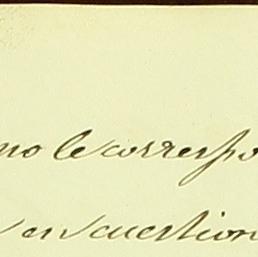 no le correspo
en cuestion